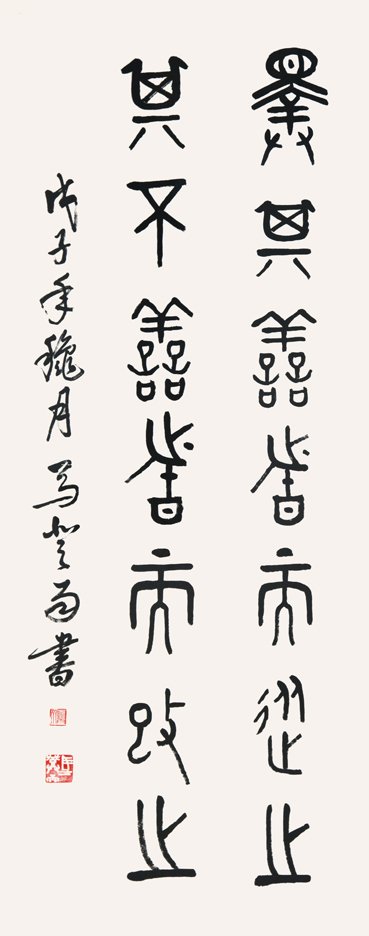 擇其善者而從之
其不善者而改之
戊子年龝月 馬 書